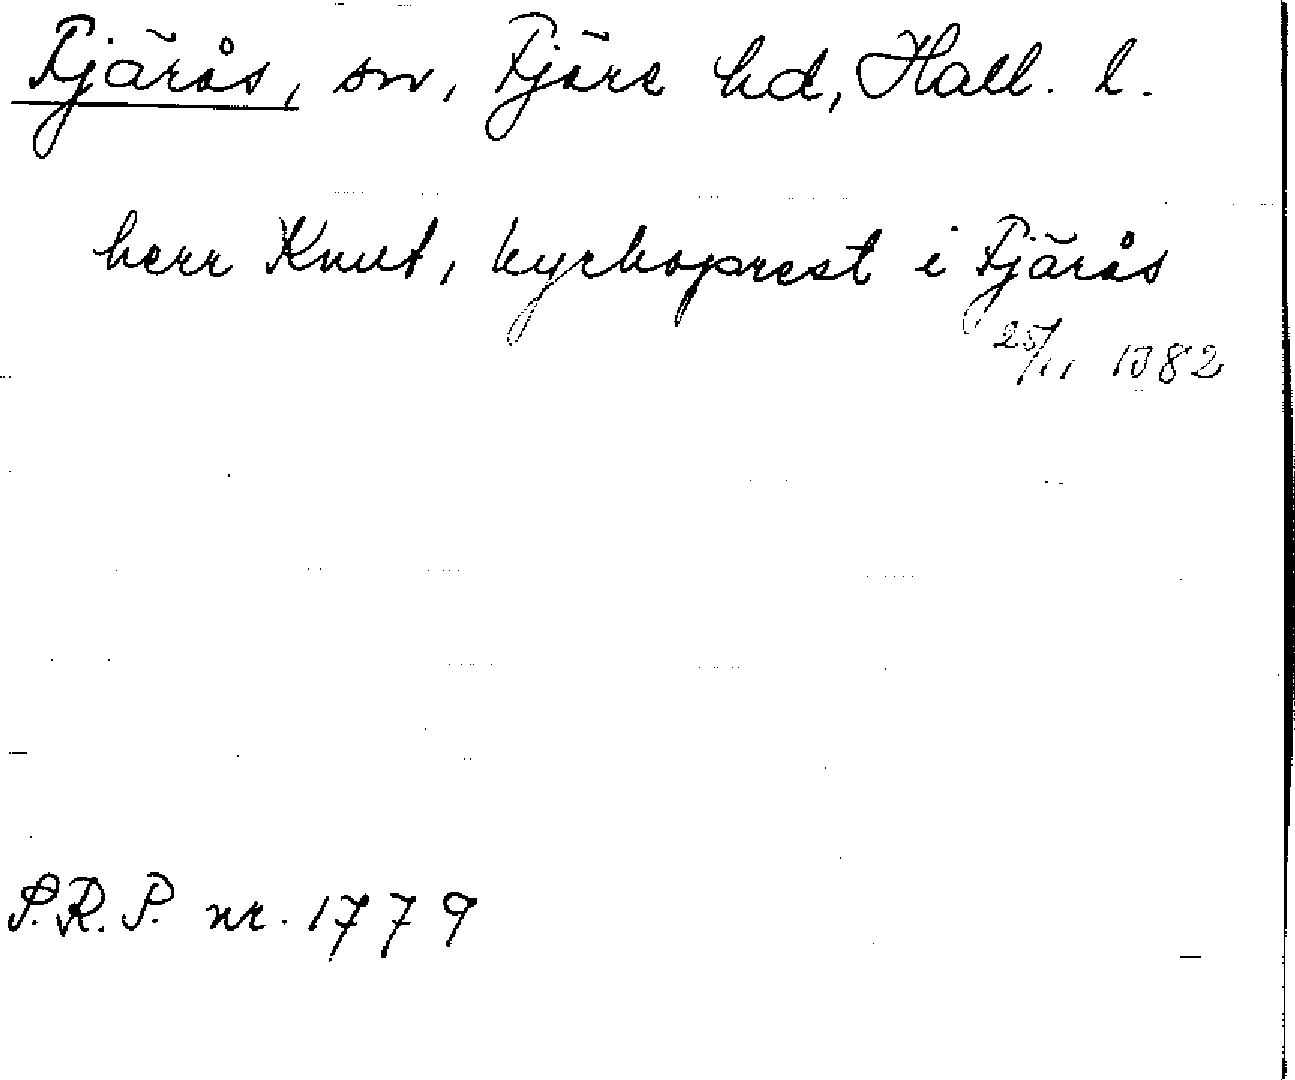 Fjärås, sn, Fjäre hd, Hall. l.
herr Knut, kyrkoprest i Fjärås
25/11 1382
S.R.P. nr. 1779